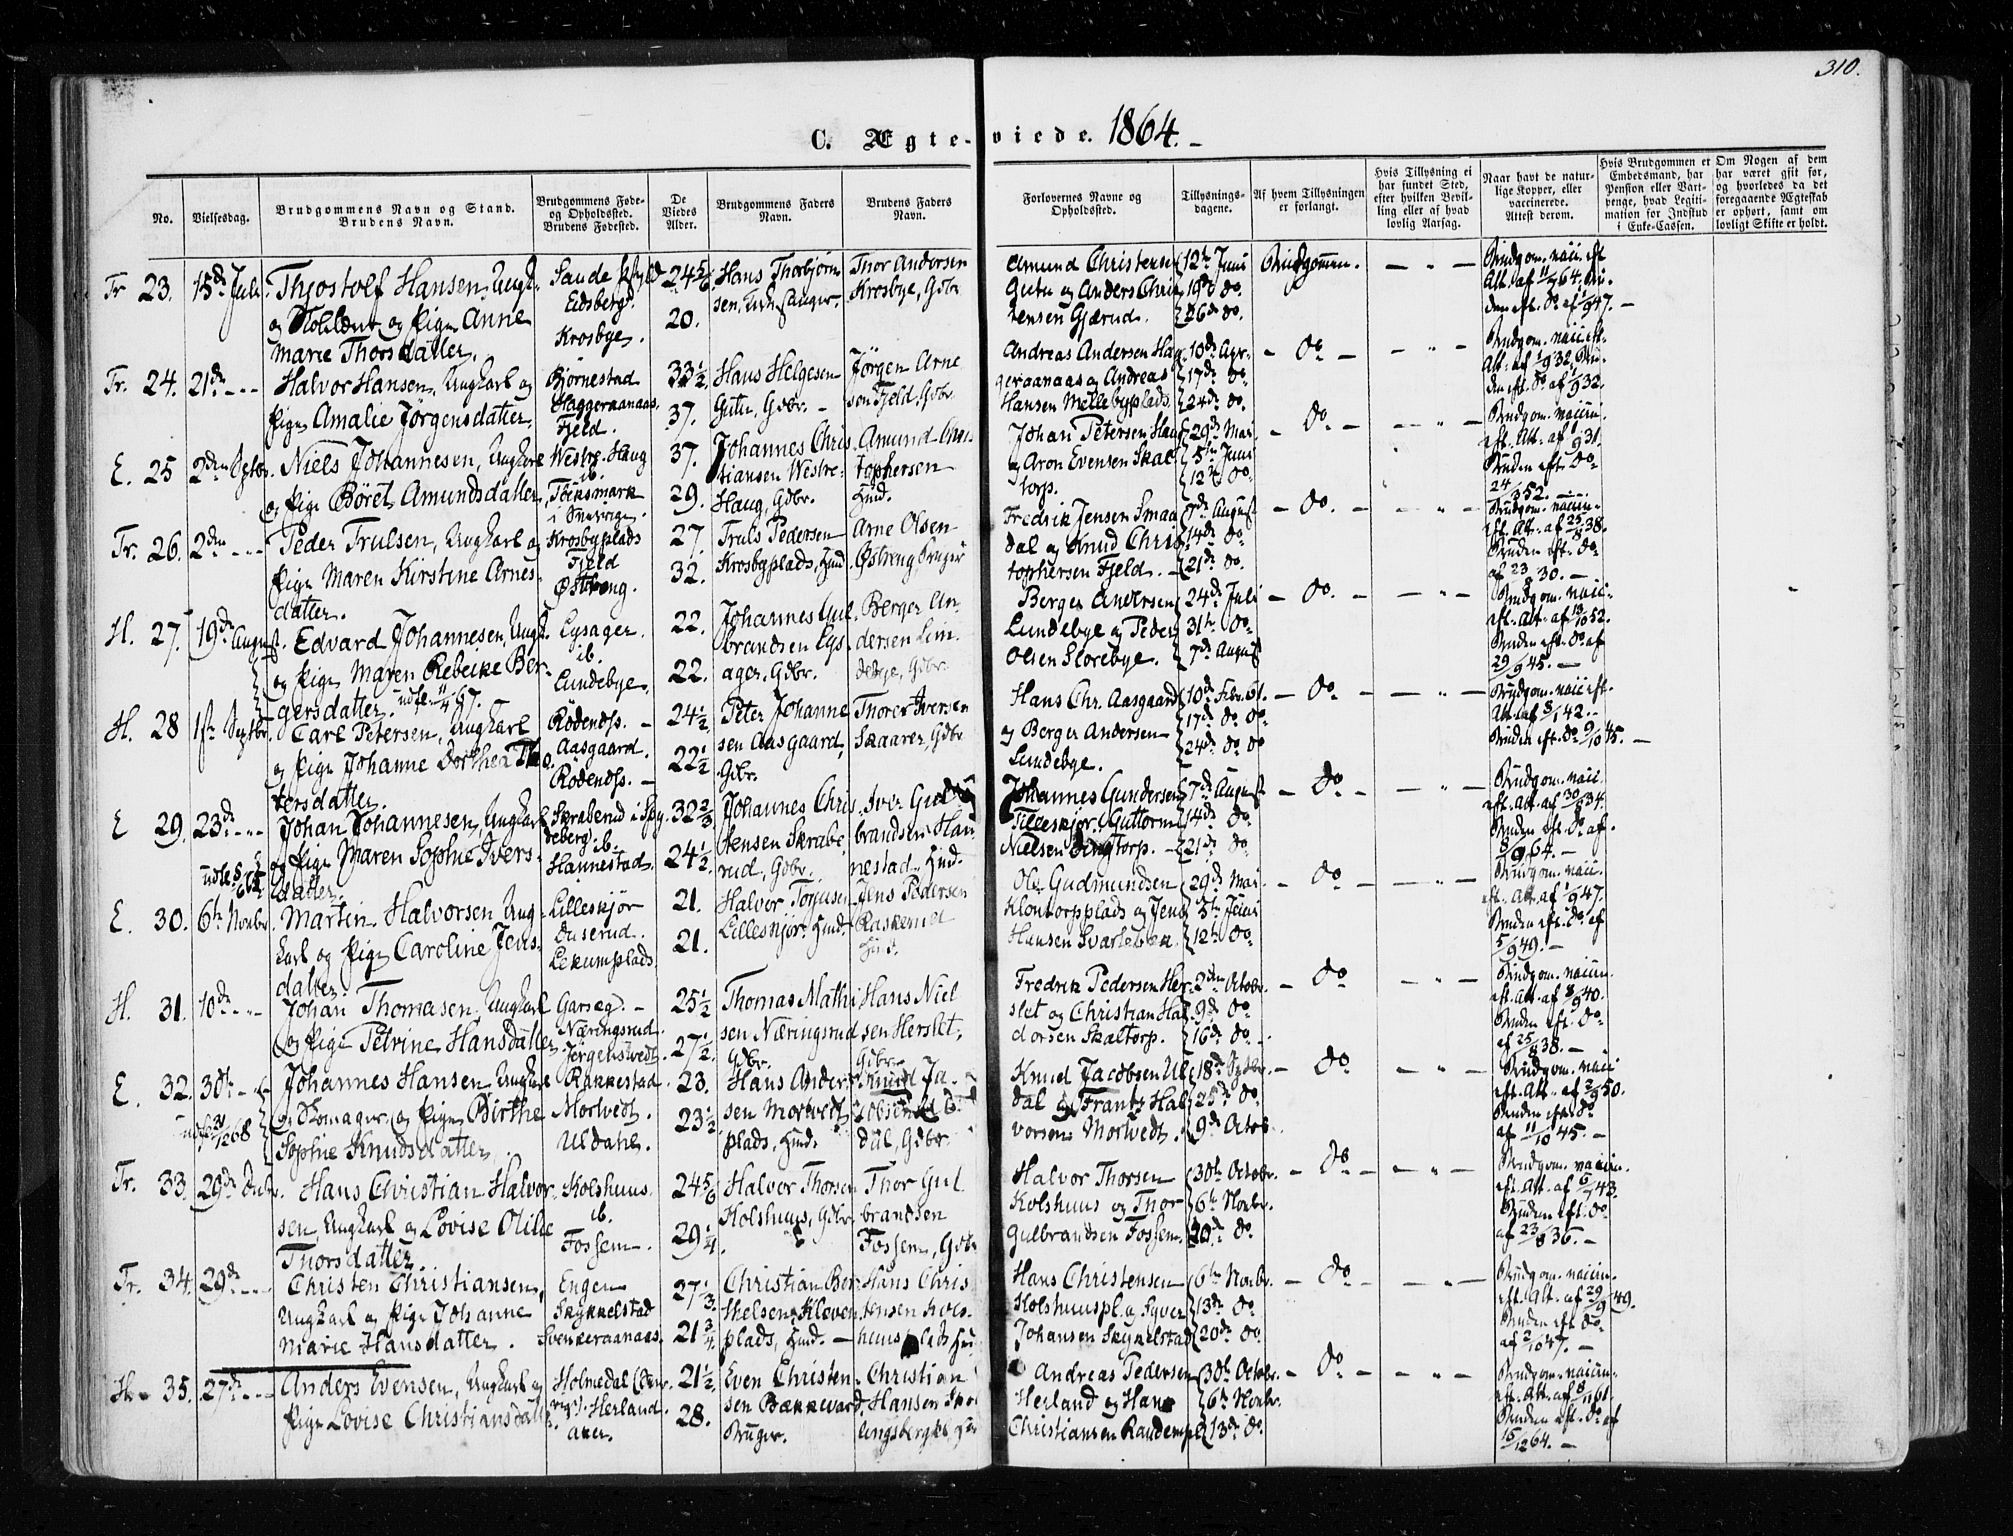 310.
C. Ægte-viede. 1864.
No.
Vielsesdag.
Brudgommens Navn og Stand.
Brudens Navn.
Brudgommens Føde-
og Opholdssted.
Brudens Fødested.
De
Viedes
Alder.
Brudgommens Faders
Navn.
Brudens Faders
Navn.
Forlovernes Navne og
Opholdssted.
Tillysnings-
dagene.
Af hvem Tillysningen
er forlangt.
Hvis Tillysning ei
har fundet Sted,
efter hvilken Bevil-
ling eller af hvad
lovlig Aarsag.
Naar havt de natur-
lige Kopper, eller
vaccinerede.
Attest derom.
Hvis Brudgommen er
Embedsmand, har
Pension eller Vart-
penge, hvad Legiti-
mation for Indskud
i Enke-Cassen.
Om Nogen af dem
har været gift før,
og hvorledes da det
foregaaende Ægteskab
er ophørt, samt om
lovligt Skifte er holdt.
Tr 23. 15de Juli.
Thjostolf Hansen, Ungk.
og Pige Anne
Marie Thorsdatter.
Edsberg.
Krosbye.
24 5/6
20.
Hans Thorbjørn
sen,
Thor Andersen
Krosbye, Gdbr.
Amund Christensen
Gutu og Anders Chris
tensen Gjærud.
12te Juni
19de do.
26de do.
Brudgommen.
Brudgom. vacc. eft.
Att. af 11/7 64. Bru-
den eft. do af 1/9 47.
Tr. 24. 21de
Halvor Hansen, Ungkarl og
Pige Amalie Jørgensdatter.
Bjørnestad
Haggeraanaas.
Fjeld.
33 1/2
37.
Hans Helgesen
Gutu, Gdbr.
Jørgen Arne
sen Fjeld, Gdbr.
Andreas Andersen Hag
geraanaas og Andreas
Hansen Mellebyplads
10de Apr.
17de do
24de do.
do
Brudgom. vacc. eft.
Att. af 1/9 32. Bru-
den eft. do af 1/9 32.
E. 25 2den Septbr.
Niels Johannesen, Ungkarl
og Pige Børet Amundsdatter.
Westre Haug
ib.
Töcksmark
i Sverrige.
37.
29.
Johannes Chris
tiansen Westre-
Haug, Gdbr.
Amund Chris
tophersen
Huusd.
Johan Petersen Haug
og Aron Evensen Skal
torp.
29de Mai
5te Juni
12te do
do
Brudgom. vaccin.
eft. Att. af 1/9 31.
Bruden eft. do
24/3 52.
Tr. 26. 2den
Peder Trulsen, Ungkarl og
Pige Maren Kirstine Arnes-
datter.
Krosbyplads
Fjeld
Østreng.
27
32.
Truls Pedersen
Krosbyplads, Huusd.
Arne Olsen
Østreng, Bruger
Fredrik Jensen Smaa
dal og Knud Chris
tophersen Fjeld.
7de August
14de do
21de do.
do.
Brudgom. vaccin.
eft. Att. af 25/8 38.
Bruden eft. do.
af 23/8 30.
H. 27. 19de August.
Edvard Johannesen, Ungk.
og Pige Maren Rebekke Ber-
gersdatter. udfl. 11/4 67.
Lysager.
ib.
Lundebye.
22.
22.
Johannes Gul
brandsen Lys
ager, Gdbr.
Berger An
dersen Lun
debye, Gdbr.
Berger Andersen
Lundebye og Peder
Olsen Slorebye.
24de Juli
31te do.
7de August
do.
Brudgom. vacc.
eft. Att. af 13/10 52.
Bruden eft. do af
29/9 45.
H. 28 1ste Septbr.
Carl Petersen, Ungkarl
og Pige Johanne Dorthea Tho
resdatter.
Rødenæs.
Aasgaard.
Rødenæs.
24 1/2
22 1/2
Peter Johanne
sen Aasgaard,
Gdbr.
Thorer Iversen
Skaarer, Gdbr
Hans Chr. Aasgaard
og Berger Andersen
Lundebye.
10de Febr. 61.
17de do do
24de do do
do
Brudgom. vacc. eft.
Att. af 8/1 42.
Bruden eft. do 9/10 45.
E 29. 23de
Johan Johannesen, Ungkarl
og Pige Maren Sophie Ivers-
datter.
Skraberud i Spy
deberg. ib.
Hannestad.
32 2/3
24 1/2
Johannes Chris
tensen Skrabe
rud, Gdbr.
Iver Gul
brandsen Han
nestad, Huusd.
Johannes Gundersen
Tilleskjør, Guttorm
Nielsen Dingtorp.
7de August
14de do
21de do.
do
Brudgom. vacc.
eft. Att. af 30/8 34.
Bruden eft. do af.
8/9 64.
E. 30. 6te Novbr.
Martin Halvorsen, Ung-
karl og Pige Caroline Jens-
datter.
Lilleskjør
Duserud.
Lekumplads.
21.
21.
Halvor Torjusen
Lilleskjør, Huusd.
Jens Pedersen
Raskerud
Huusd.
Ole Gudmundsen
Klontorpplads og Jens
Hansen Svarteben.
29de Mai
5te Juni
12te do
do
Brudgom. vacc.
eft. Att. af 1/9 47.
Bruden eft. do af
5/9 49.
H. 31. 10de
Johan Thomasen, Ungkarl
og Pige Petrine Hansdatter
Garseg.
Næringsrud.
Jørgenstvedt.
25 1/2
27 1/2.
Thomas Mathi
sen Næringsrud
Gdbr.
Hans Niel
sen Herslet,
Gdbr.
Fredrik Pedersen Her
slet og Christian Hal
dorsen Skaltorp.
2den Octobr.
9de do
16de do
do
Brudgom. vaccin.
eft. Att. af 8/9 40.
Bruden eft. do.
af 25/8 38.
E. 32. 30te
Johannes Hansen, Ungkarl
og Skomager, og Pige Birthe
Sophie Knudsdatter.
Rakkestad.
Mortvedt.
Uldahl.
23.
23 1/2
Hans Ander
sen Mortvedt
plads, Huusd.
Knud Ja
cobsen Ul
dal, Gdbr.
Knud Jacobsen Ul
dal og Frantz Hal
vorsen Mortvedt.
18de Septbr.
25de do.
9de Octob.
do
Brudgom. vacc
eft. Att. af 2/9 50.
Bruden eft. do
af 11/10 45.
Tr. 33. 29de Decbr.
Hans Christian Halvor
sen, Ungkarl og Lovise Otilie
Thorsdatter.
Kolshuus.
ib.
Fossem.
24 5/6
29 1/4.
Halvor Thorsen
Kolshuus, Gdbr.
Thor Gul
brandsen
Fossem, Gdbr
Halvor Thorsen
Kolshuus og Thor
Gulbrandsen Fossem.
30te Octobr.
6te Novbr.
20de do
do
Brudgom. vaccin.
eft. Att. af 6/7 43.
Bruden eft. do
af 23/8 36.
Tr. 34. 29de
Christen Christiansen,
Ungkarl og Pige Johanne
Marie Hansdatter.
Engen
Skykkelstad
Svenkeraanaas.
27 1/3.
21 3/4
Christian Ber
thelsen Kleven
plads, Huusd.
Hans Chris
tensen Kols
huusplads Huusd
Hans Christensen
Kolshuuspl. og Syver
Johansen Skykelstad
6te Novbr.
13de do
20de do.
do
Brudgom. vaccin.
eft. Att. af 29/9 49.
Bruden eft. do.
af 2/10 47.
H. 35. 27de
Anders Evensen, Ungkarl og
Pige Lovise Christiansdatter.
Holmedal (Sver
rige). Herland.
21 1/2
28.
Even Christen
sen Bækkevard
Bruger.
Christian
Hansen Skol
lingsberget, Huusd
Andreas Pedersen
Herland og Hans
Christiansen Raudempl.
30te Octobr.
6te Novbr.
13de do.
do
Brudgom. vaccin.
eft. Att. af 8/11 61.
Bruden eft. do af
15/12 64.